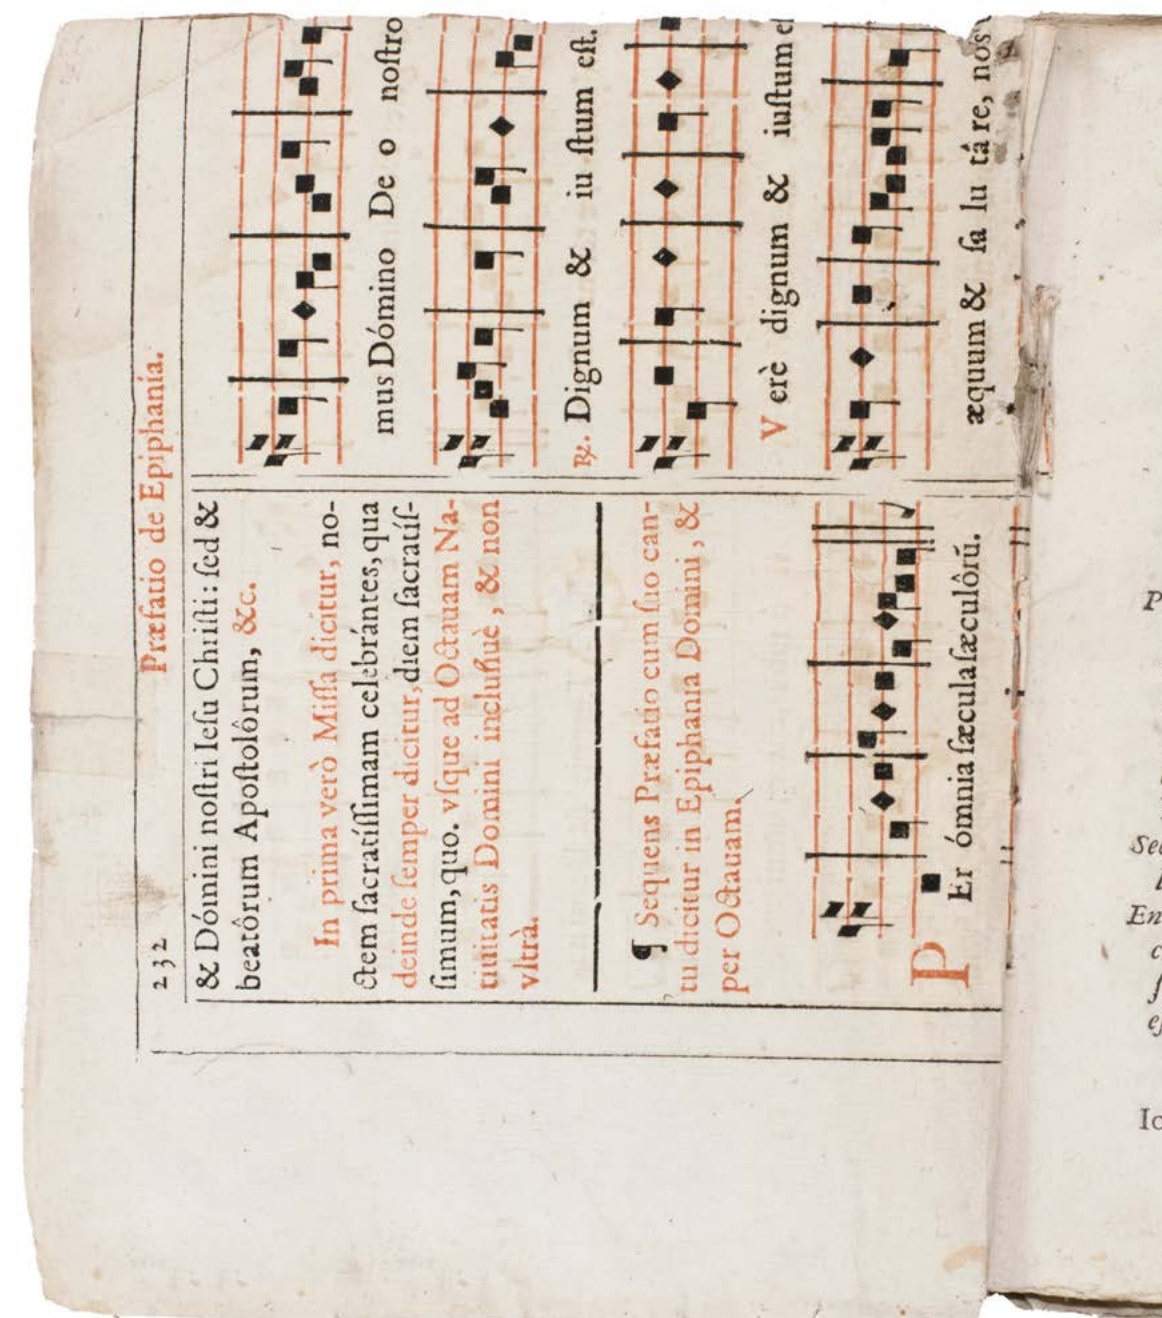 232
Præfatio de Epiphanía.
& Dómini noſtri Ieſu Chriſti: ſed &
beatôrum Apoſtolôrum, &c.
In prima verò Miſſa dicitur, no-
ctem ſacratíſſimam celebrántes, qua
deinde ſemper dicitur, diem ſacratíſ-
ſimum, quo. vſque ad Octauam Na-
tiuitatis Domini incluſiuè, & non
vltrà.
¶ Sequens Præfatio cum ſuo can-
tu dicitur in Epiphania Domini, &
per Octauam.
PEr ómnia ſæcula ſæculôrũ.
mus Dómino De o noſtro
℟. Dignum & iu ſtum eſt.
Verè dignum & iuſtum
æquum & ſa lu tá re, nos
P
En
Io